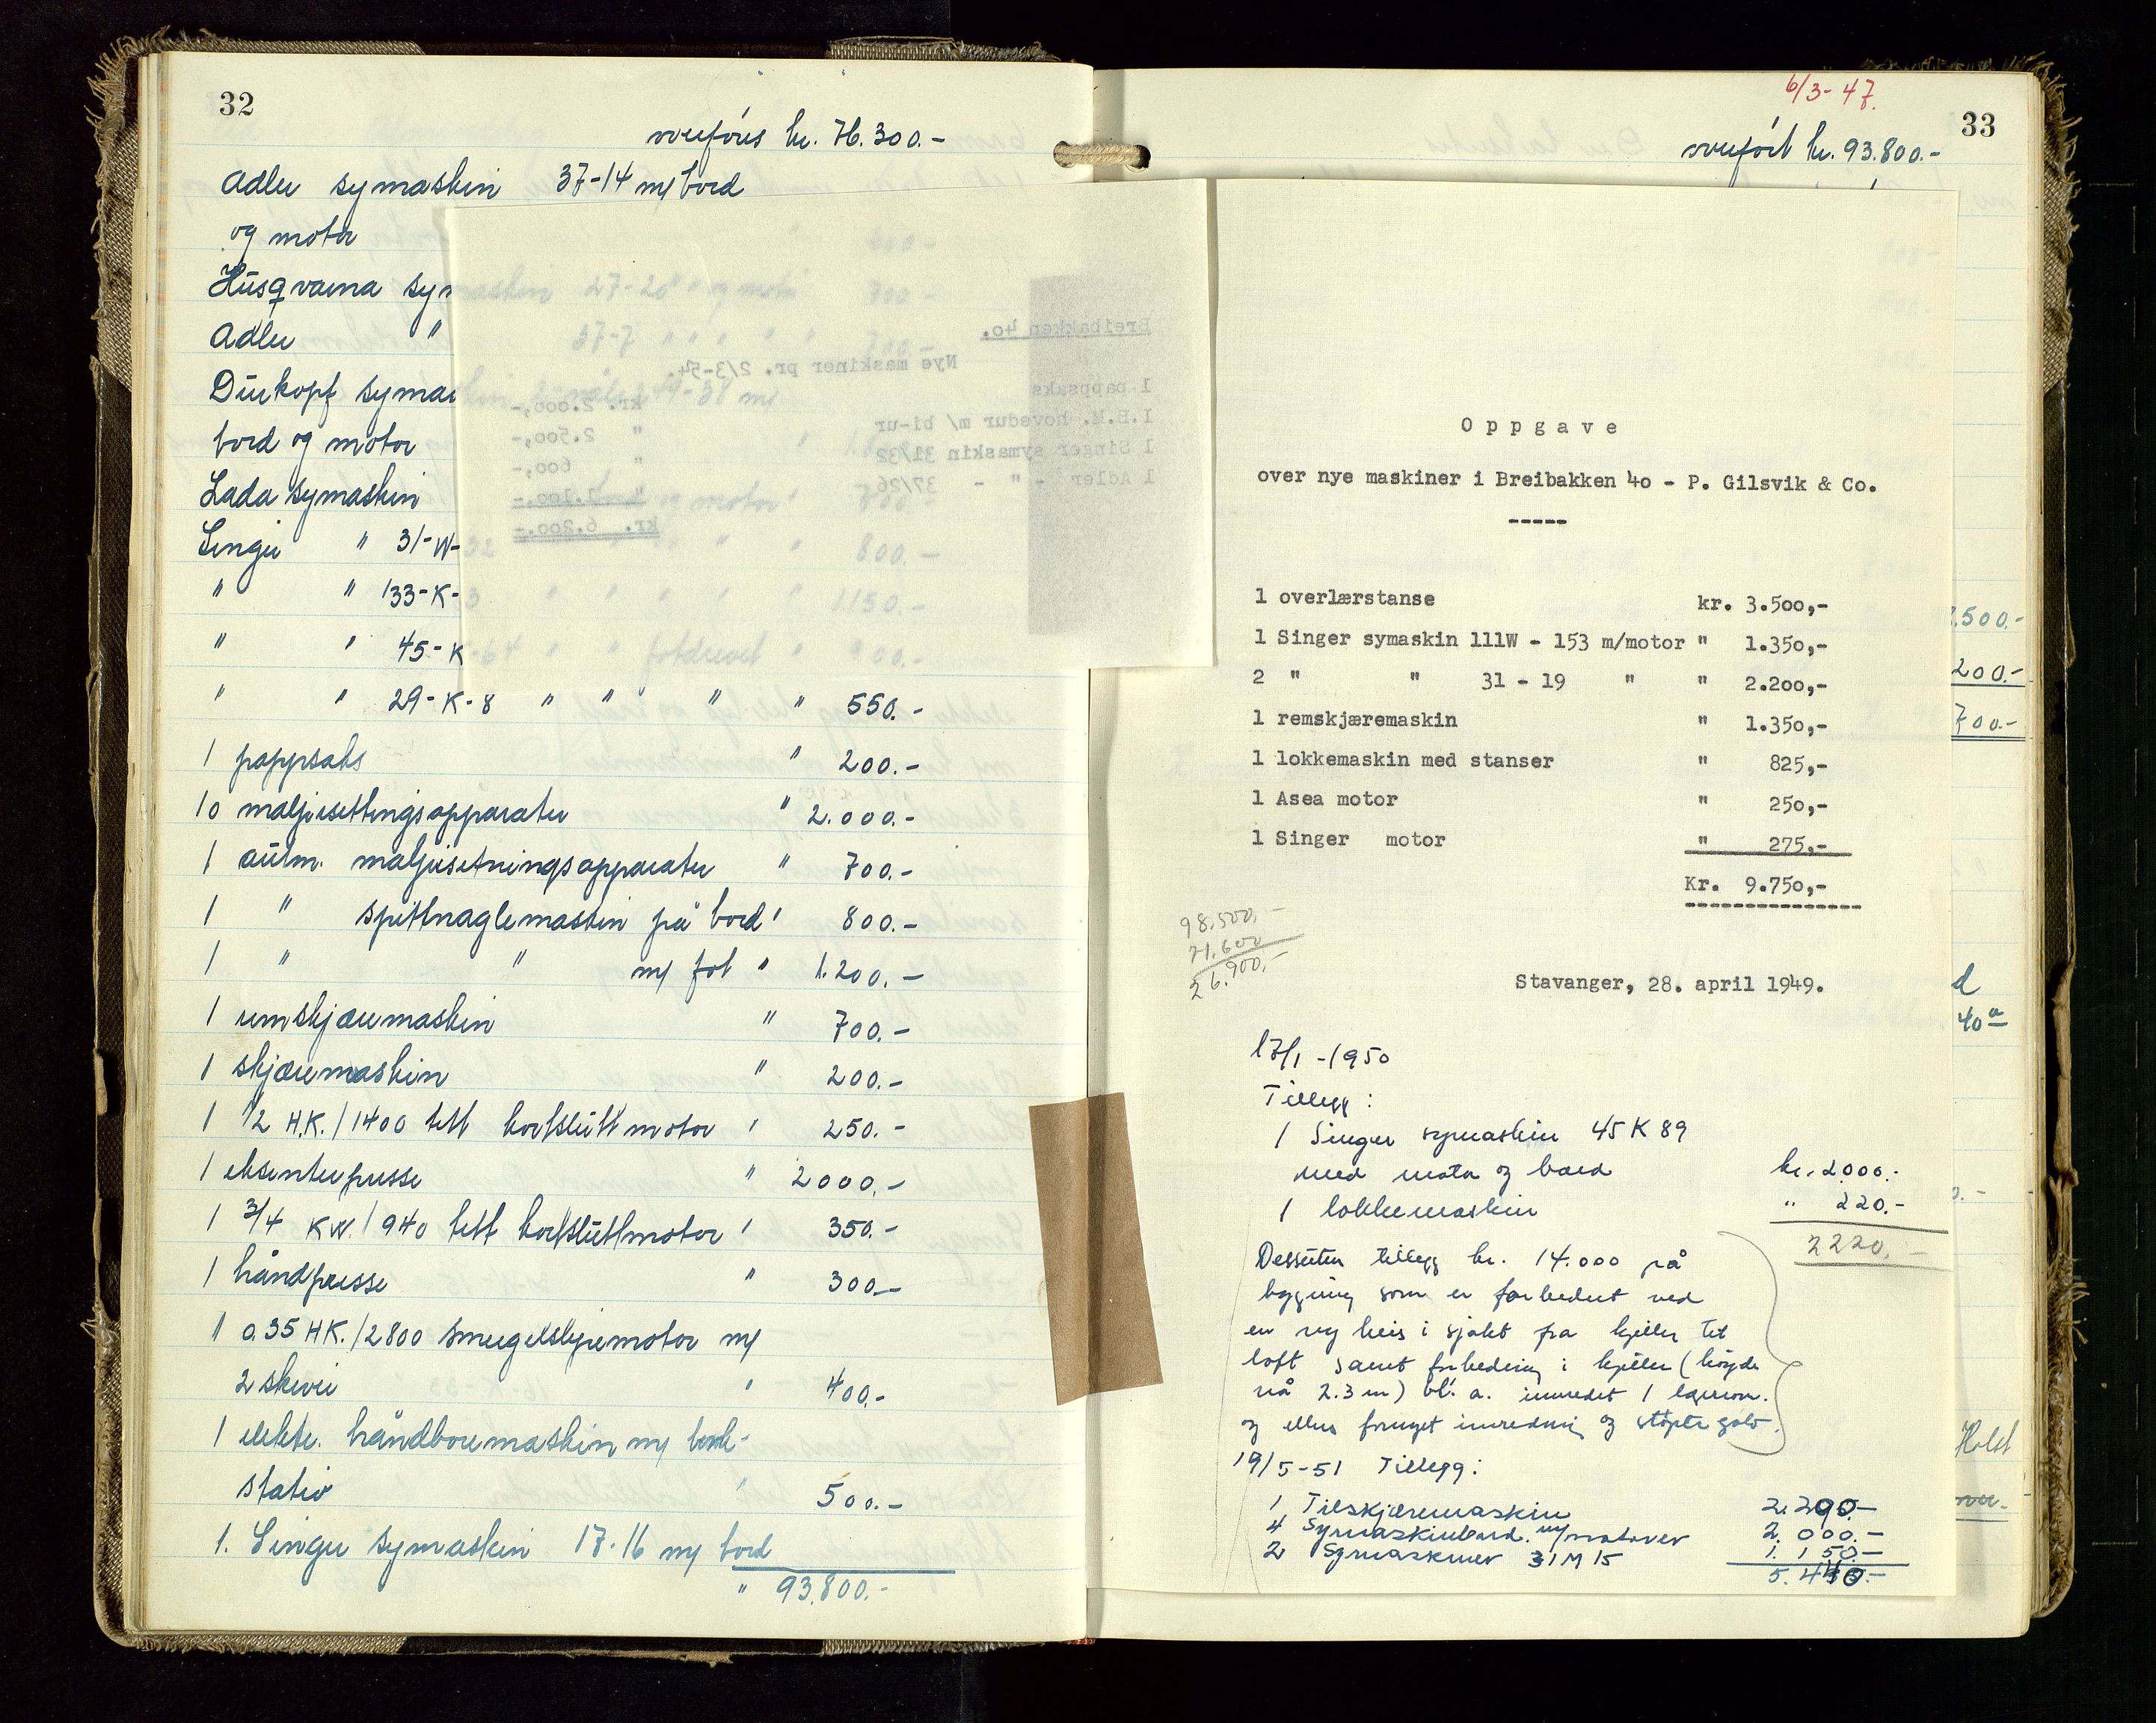 32
overføres kr. 76.300.-
Adler symaskin 37-14 m/ bord
og motor
Husqvarna symaskin 27-28 " og motor 700.-
Adler " 37-7 " " " " 700.-
Dürkopf symaskin
bord og motor
Lada symaskin og motor
Singer " 31-W-32 " " " 800.-
" " 133-K-3 " " " " " 1150.-
" " 45-K-64 " " fotdrevet "
" " 29-K-8 " " " " 550.-
1 pappsaks " 200.-
10 maljesettingsapparater " 2.000.-
1 autm. maljesetningsapparater " 700.-
1 " splittnaglemaskin på bord " 800.-
1 " " m/ fot " 1.200.-
1 remskjæremaskin " 700.-
1 skjæremaskin " 200.-
1 1/2 H.K. / 1400 tett kortsluttmotor " 250.-
1 eksenterpresse " 2000.-
1 3/4 KW. / 940 tett kortsluttmotor " 350.-
1 håndpresse " 300.-
1 0.35 HK. / 2800 smergelslipemotor m/
2 skiver " 400.-
1 elektr. håndboremaskin m/ bork-
stativ " 500.-
1. Singer symaskin 17-16 m/ bord
" 93.800.-
Breibakken 40.
Nye maskiner pr. 2/3-54.
1 pappsaks kr. 2.000,-
1.B.M. hovedur m/ bi-ur " 2.500,-
1 Singer symaskin 31/32 " 600,-
1 Adler - " - 37/26 " 1.100.-
kr. 6.200.-
6/3-47.
33
overført kr. 93.800.-
Oppgave
over nye maskiner i Breibakken 40 - P. Gilsvik & Co.
-----
1 overlærstanse kr. 3.500,-
1 Singer symaskin 111W - 153 m/motor " 1.350,-
2 " " 31 - 19 " " 2.200,-
1 remskjæremaskin " 1.350,-
1 lokkemaskin med stanser " 825,-
1 Asea motor " 250,-
1 Singer motor " 275.-
Kr. 9.750,-
98.500.-
71.600
26.900.-
Stavanger, 28. april 1949.
17/1 -1950
Tillegg :
1 Singer symaskin 45 K 89
med motor og bord kr. 2.000.-
1 lokkemaskin " 220.-
2220.-
Dessuten tillegg kr. 14.000 på
bygning som er forbedret ved
en ny heis i sjakt fra kjeller til
loft samt forbedring i kjeller (høyde
nå 2.3 m) bl. a. innredet 1 lagerrom.
og ellers fornyet innredning og støpte golv.
19/5-51 Tillegg:
1 Tilskjæremaskin 2.290.-
4 Symaskinbord. m/motorer 2.000.-
2 Symaskiner 31 M 15 1.150.-
5.440.-
.500.-
200.-
700.-
d
40a
Holst